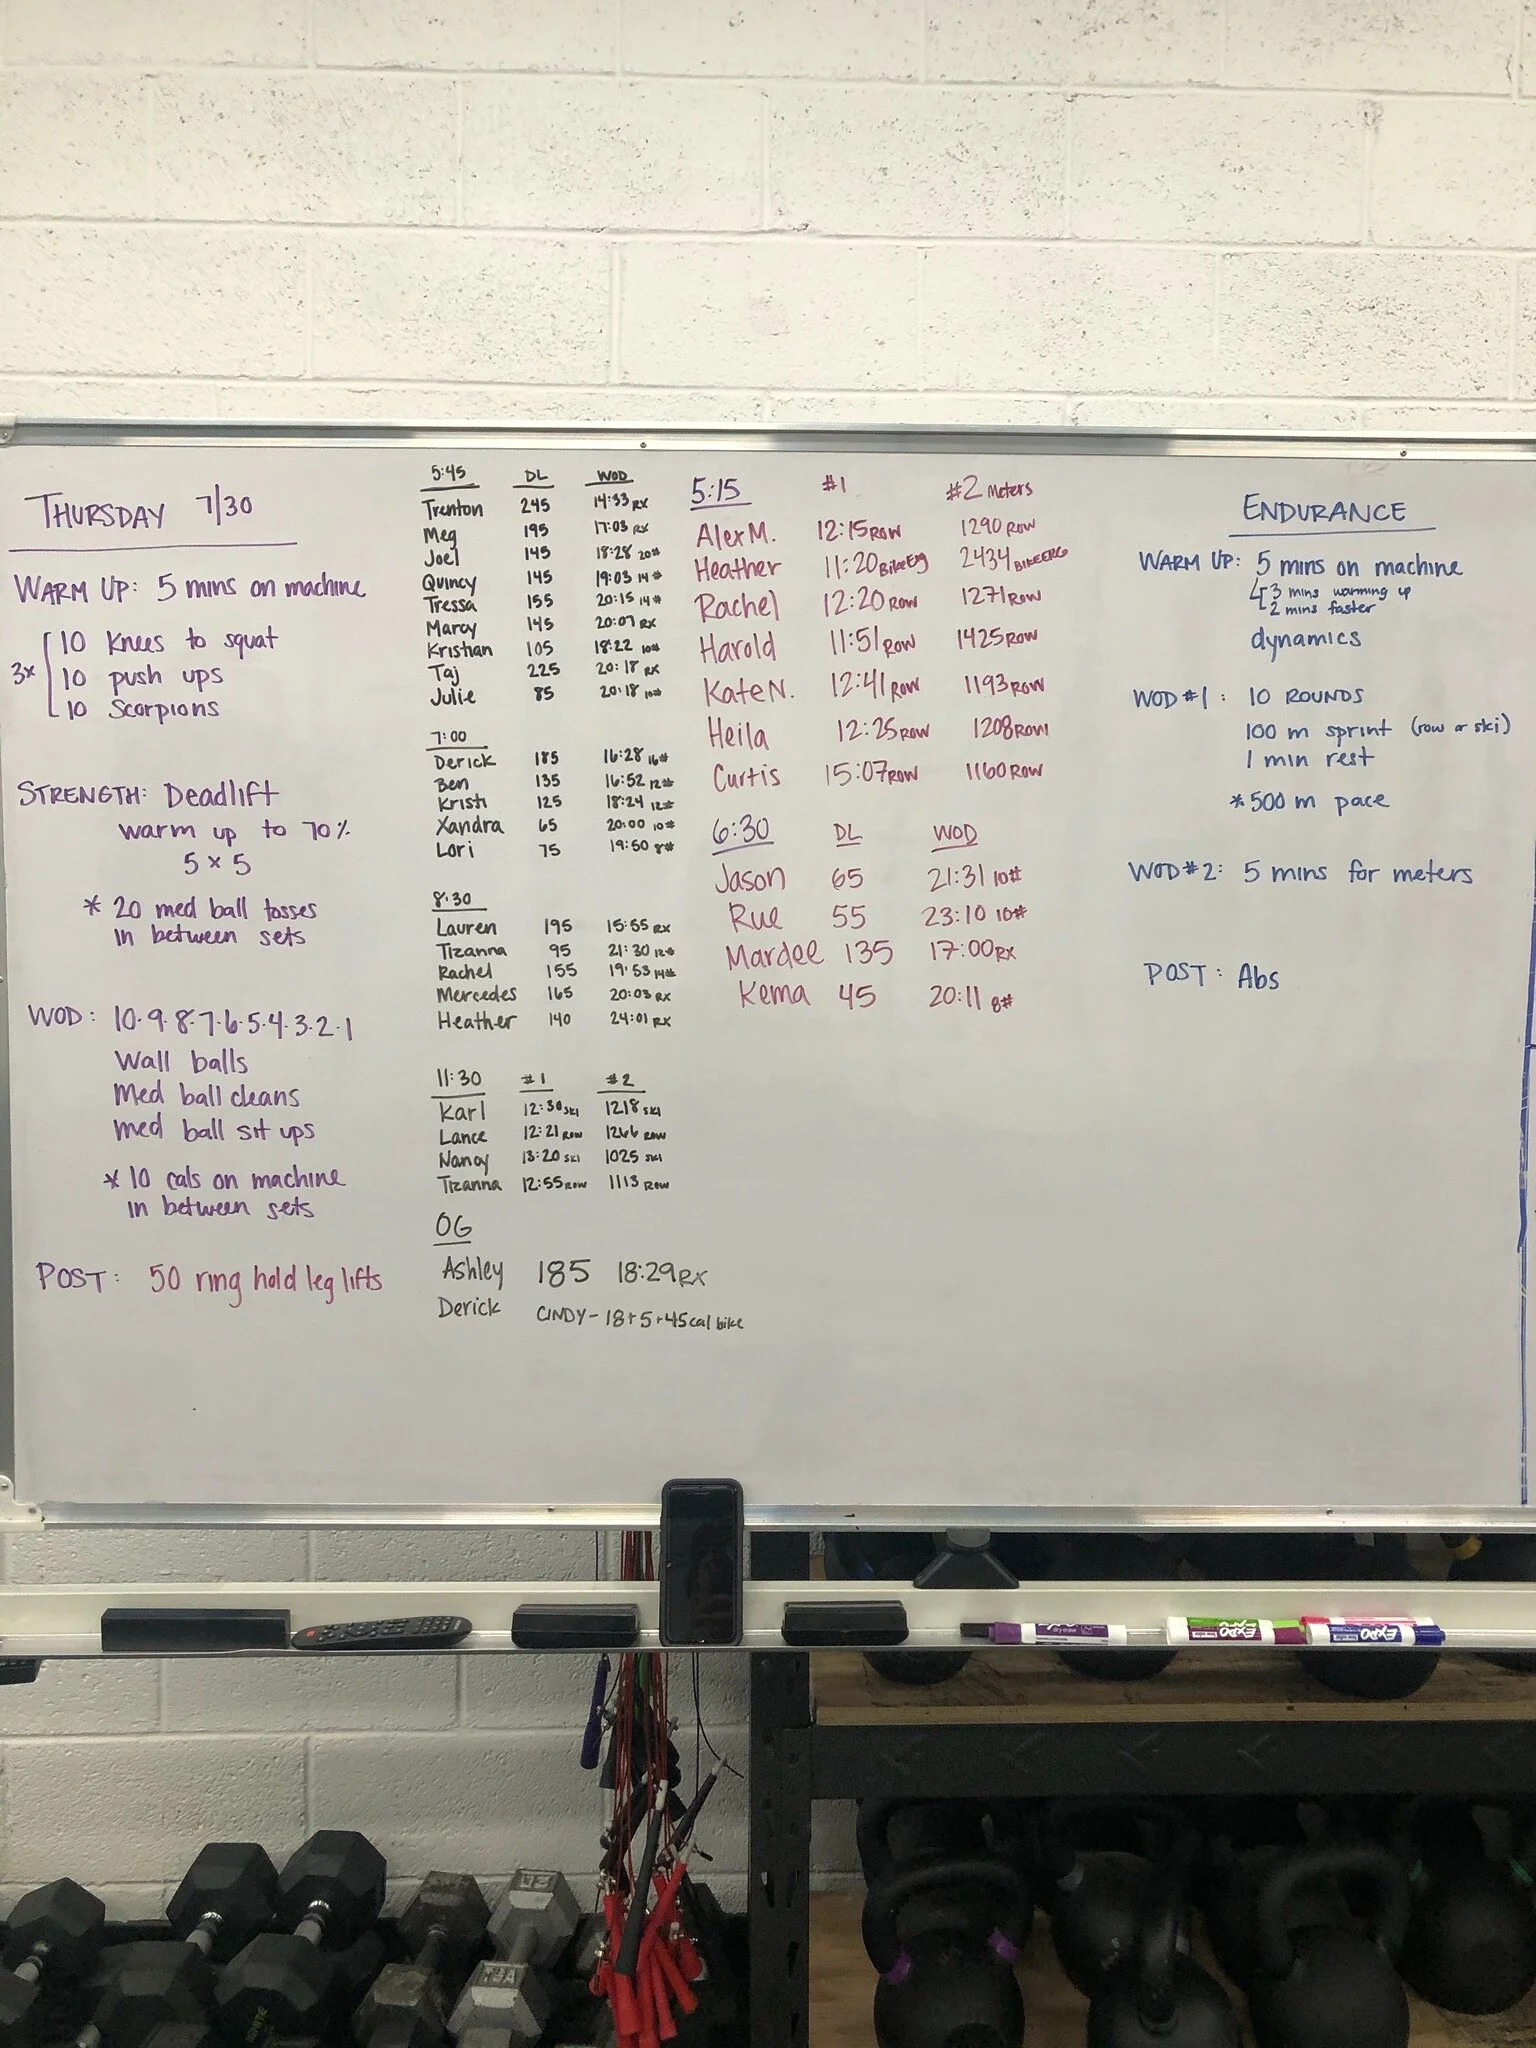 THURSDAY 7/30
WARM UP: 5 mins on machine
3x
10 Knees to squat
10 push ups
10 Scorpions
STRENGTH: Deadlift
warm up to 70%
5 x 5
* 20 med ball tosses
in between sets
WOD: 10·9·8·7·6·5·4·3·2·1
Wall balls
Med ball cleans
med ball sit ups
* 10 cals on machine
in between sets
POST: 50 ring hold leg lifts
5:45 DL WOD
Trenton 245 14:33 RX
Meg 195 17:03 RX
Joel 145 18:28 20#
Quincy 145 19:03 14#
Tressa 155 20:15 14#
Marcy 145 20:07 RX
Kristian 105 18:22 10#
Taj 225 20:18 RX
Julie 85 20:18 10#
7:00
Derick 185 16:28 16#
Ben 135 16:52 12#
Kristi 125 18:24 12#
Xandra 65 20:00 10#
Lori 75 19:50 8#
8:30
Lauren 195 15:55 RX
Tizanna 95 21:30 12#
Rachel 155 19:53 14#
Mercedes 165 20:03 RX
Heather 140 24:01 RX
11:30 #1 #2
Karl 12:30 SKI 1218 SKI
Lance 12:21 ROW 1266 ROW
Nancy 13:20 SKI 1025 SKI
Tizanna 12:55 ROW 1113 ROW
OG
Ashley 185 18:29 RX
Derick CINDY - 18+5+45 cal bike
5:15 #1 #2 Meters
Alex M. 12:15 ROW 1290 ROW
Heather 11:20 BikeErg 2434 BIKEERG
Rachel 12:20 ROW 1271 ROW
Harold 11:51 ROW 1425 ROW
Kate N. 12:41 ROW 1193 ROW
Heila 12:25 ROW 1208 ROW
Curtis 15:07 ROW 1160 ROW
6:30 DL WOD
Jason 65 21:31 10#
Rue 55 23:10 10#
Mardee 135 17:00 RX
Kema 45 20:11 8#
ENDURANCE
WARM UP: 5 mins on machine
3 mins warming up
2 mins faster
dynamics
WOD #1: 10 ROUNDS
100 m sprint (row or ski)
1 min rest
* 500 m pace
WOD #2: 5 mins for meters
POST: Abs
EXPO
EXPO